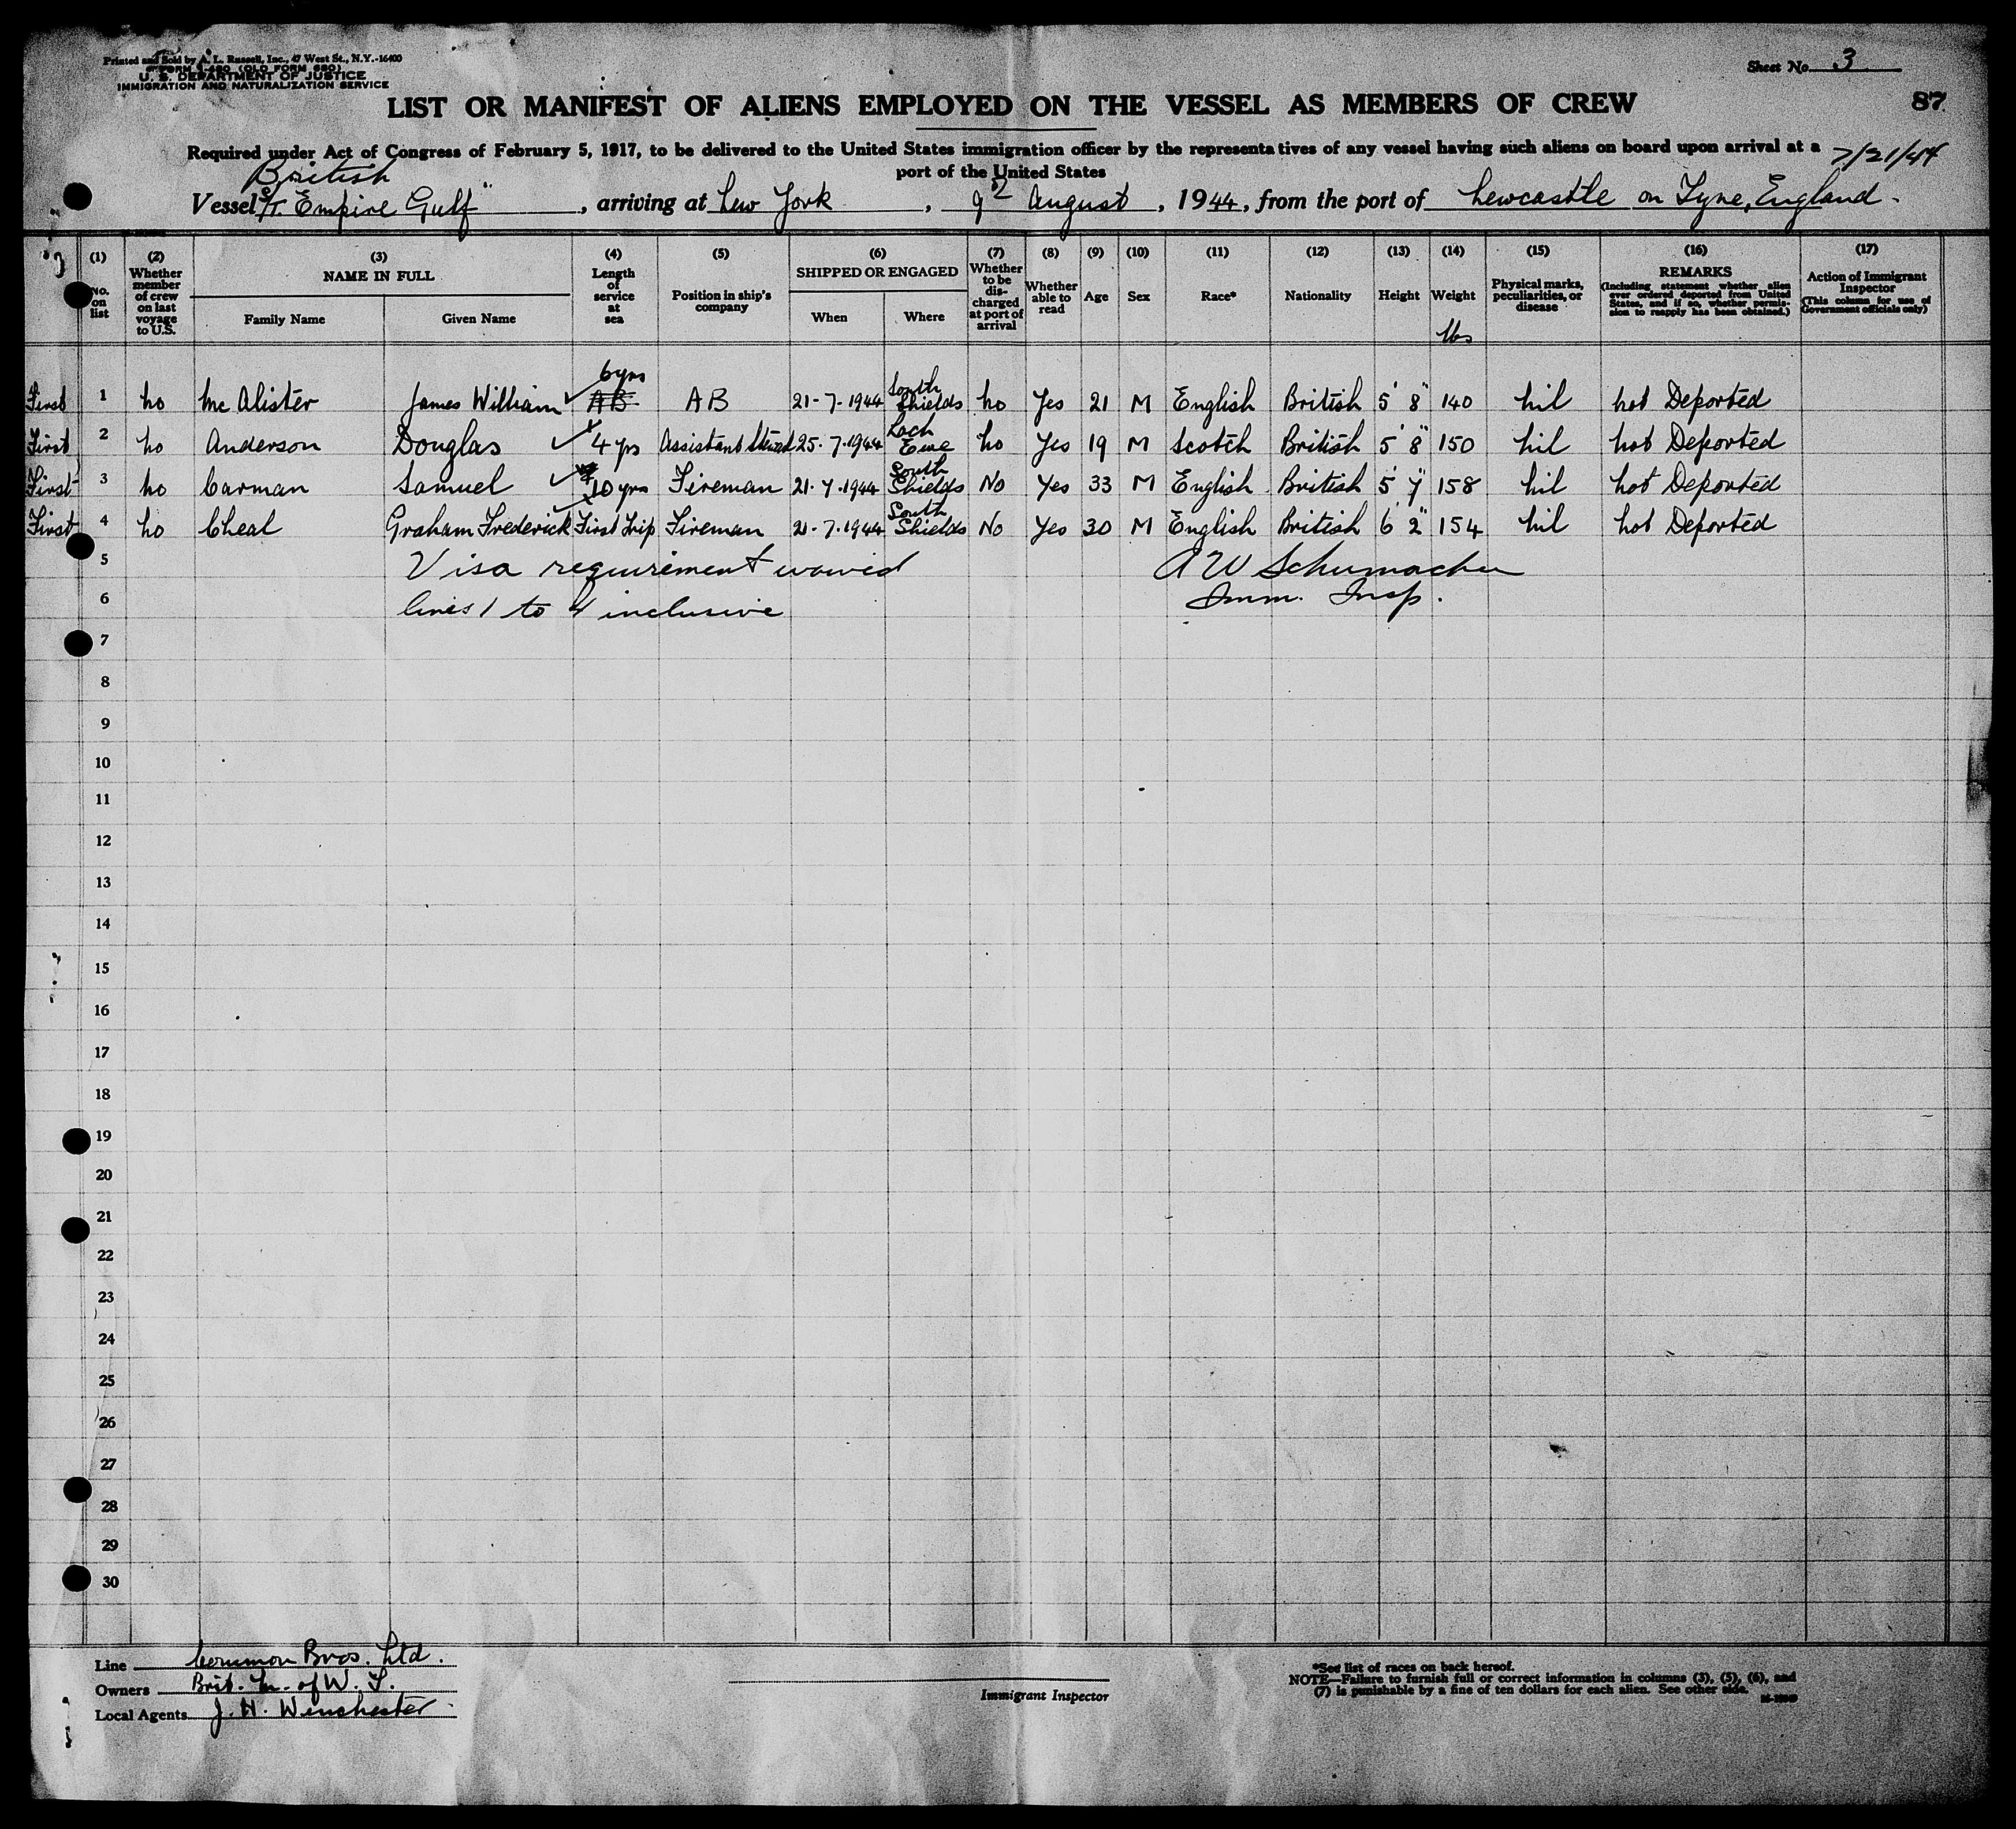 Printed and Sold by A. L. Russell, Inc., 47 West St., N.Y.-16400
FORM I-480 (OLD FORM 680)
U. S. DEPARTMENT OF JUSTICE
IMMIGRATION AND NATURALIZATION SERVICE
Sheet No. 3
LIST OR MANIFEST OF ALIENS EMPLOYED ON THE VESSEL AS MEMBERS OF CREW
87
Required under Act of Congress of February 5, 1917, to be delivered to the United States immigration officer by the representatives of any vessel having such aliens on board upon arrival at a
port of the United States
7/21/44
British
Vessel "Empire Gulf", arriving at New York, 9th August, 1944, from the port of Newcastle on Tyne, England.
(1) (2) (3) (4) (5) (6) (7) (8) (9) (10) (11) (12) (13) (14) (15) (16) (17)
No. on list
Whether member of crew on last voyage to U.S.
NAME IN FULL
Family Name
Given Name
Length of service at sea
Position in ship's company
SHIPPED OR ENGAGED
When
Where
Whether to be discharged at port of arrival
Whether able to read
Age
Sex
Race*
Nationality
Height
Weight
lbs
Physical marks, peculiarities, or disease
REMARKS
(Including statement whether alien ever ordered deported from United States, and if so, whether permission to reapply has been obtained.)
Action of Immigrant Inspector
(This column for use of Government officials only)
First 1 No McAlister James William 6 yrs AB AB 21-7-1944 South Shields No Yes 21 M English British 5' 8" 140 Nil Not Deported
First 2 No Anderson Douglas 4 yrs Assistant Steward 25-7-1944 Loch Ewe No Yes 19 M Scotch British 5' 8" 150 Nil Not Deported
First 3 No Carman Samuel 10 yrs Fireman 21-7-1944 South Shields No Yes 33 M English British 5' 7" 158 Nil Not Deported
First 4 No Cheal Graham Frederick First Trip Fireman 21-7-1944 South Shields No Yes 30 M English British 6' 2" 154 Nil Not Deported
5 Visa requirement waived A W Schumacher
6 lines 1 to 4 inclusive Imm. Insp.
7
8
9
10
11
12
13
14
15
16
17
18
19
20
21
22
23
24
25
26
27
28
29
30
Line Common Bros. Ltd.
Owners Brit. M. of W. T.
Local Agents J. H. Winchester
Immigrant Inspector
*See list of races on back hereof.
NOTE—Failure to furnish full or correct information in columns (3), (5), (6), and
(7) is punishable by a fine of ten dollars for each alien. See other side.